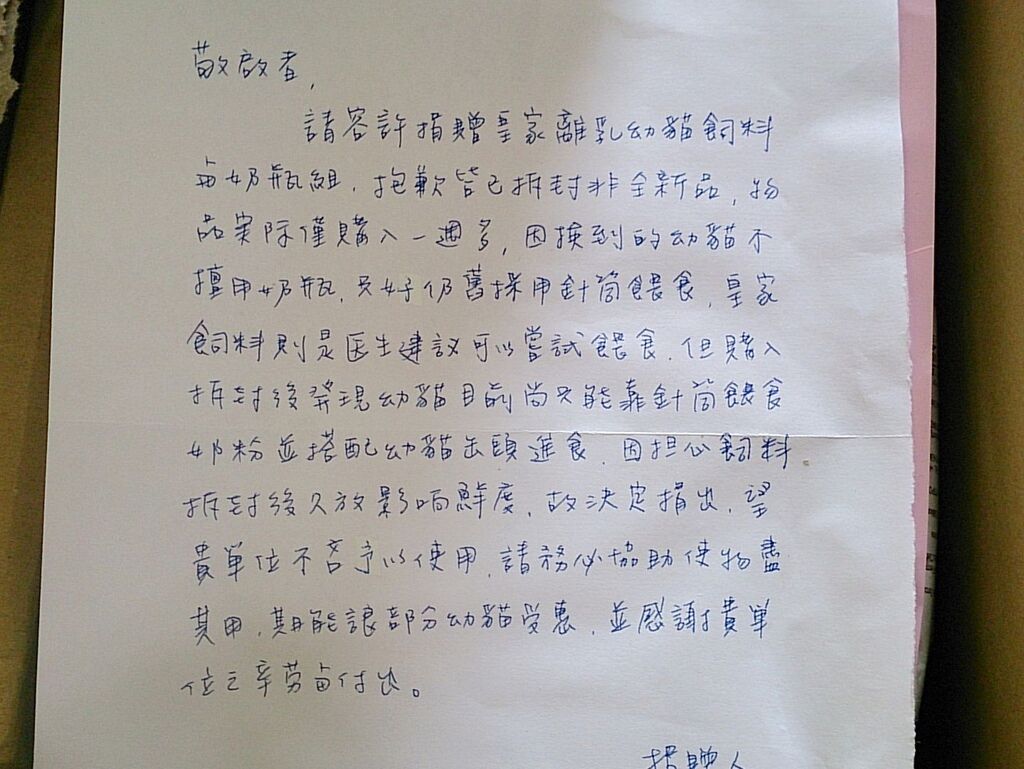 敬啟者,
請容許捐贈皇家離乳幼貓飼料
與奶瓶組,抱歉皆已拆封非全新品,物
品实际僅購入一週多,因撿到的幼貓不
擅用奶瓶,只好仍舊採用針筒餵食,皇家
飼料則是医生建议可以嘗試餵食,但購入
拆封後發現幼貓目前尚只能靠針筒餵食
奶粉並搭配幼貓缶頭進食,因担心飼料
拆封後久放影响鮮度,故決定捐出,望
貴單位不吝予以使用,請務必協助使物盡
其用,期能讓部分幼貓受惠,並感謝貴單
位之辛劳與付出。
捐贈人